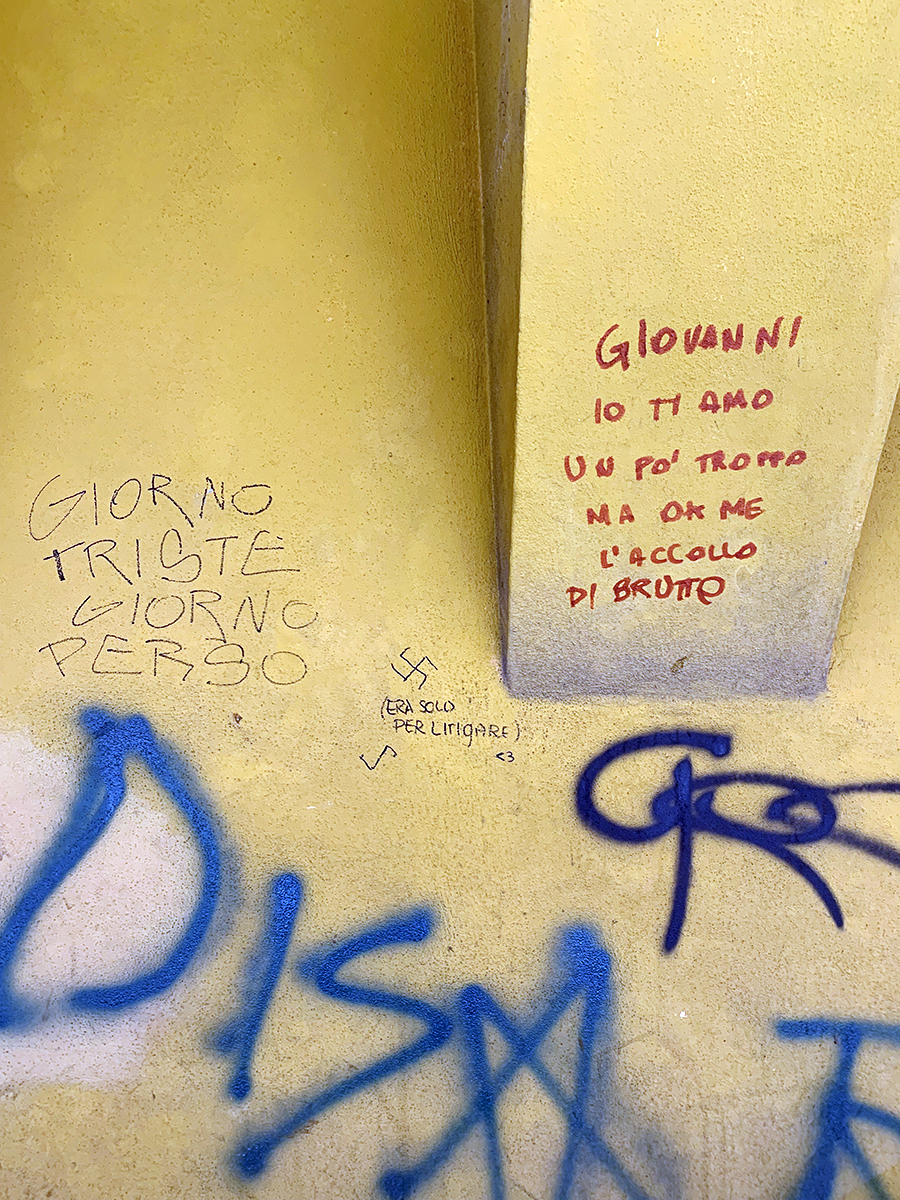 GIOVANNI
IO TI AMO
UN PO' TROPPO
MA OK ME
L'ACCOLLO
DI BRUTTO
GIORNO
TRISTE
GIORNO
PERSO
(ERA SOLO
PER LITIGARE)
<3
DISM